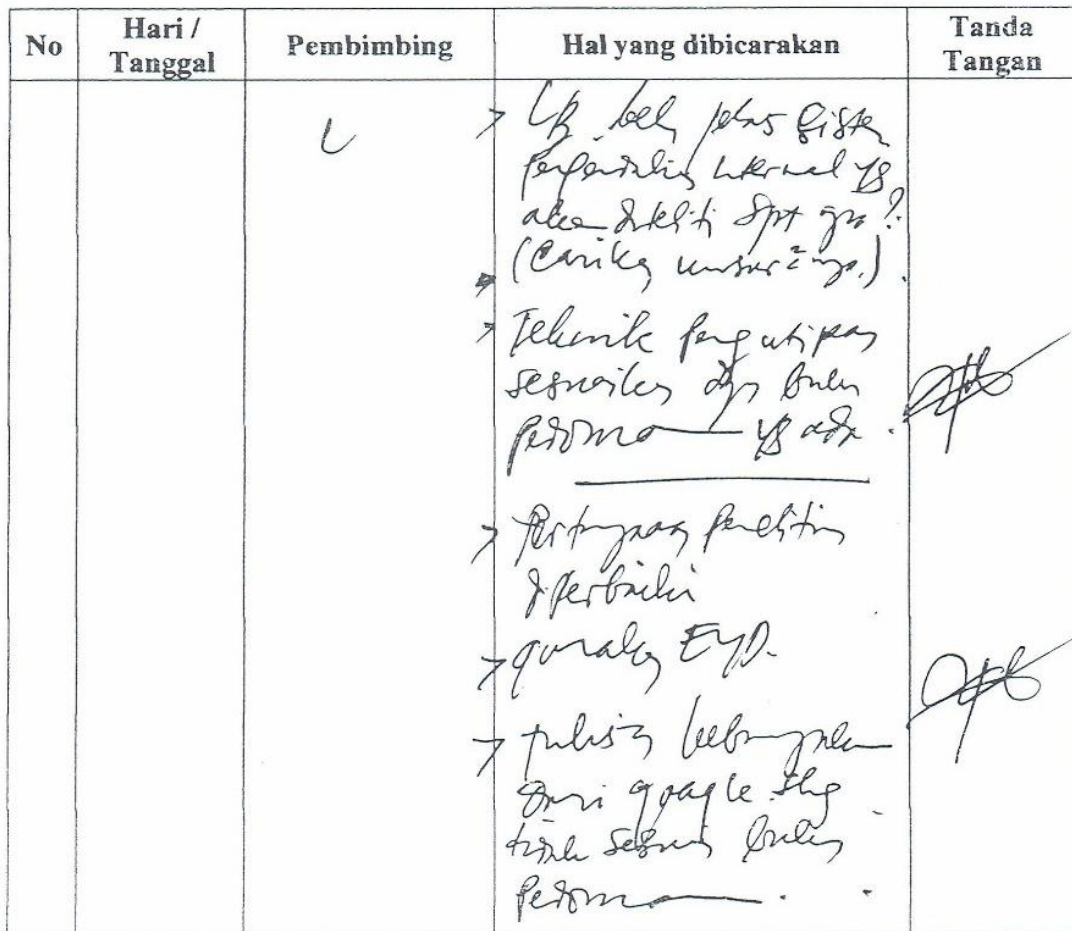 No
Hari /
Tanggal
Pembimbing
Hal yang dibicarakan
Tanda
Tangan
> LB. jelas sistem
internal yg
akan diteliti spt ?
(Carikan unsur2nya.)
> Teknik pengutipan
sesuaikan dgn buku
pedoman yg ada.
> Pertanyaan penelitian
diperbaiki
> gunakan EYD.
> tulisan kebanyakan
dari google shg
tidak sesuai buku
pedoman.